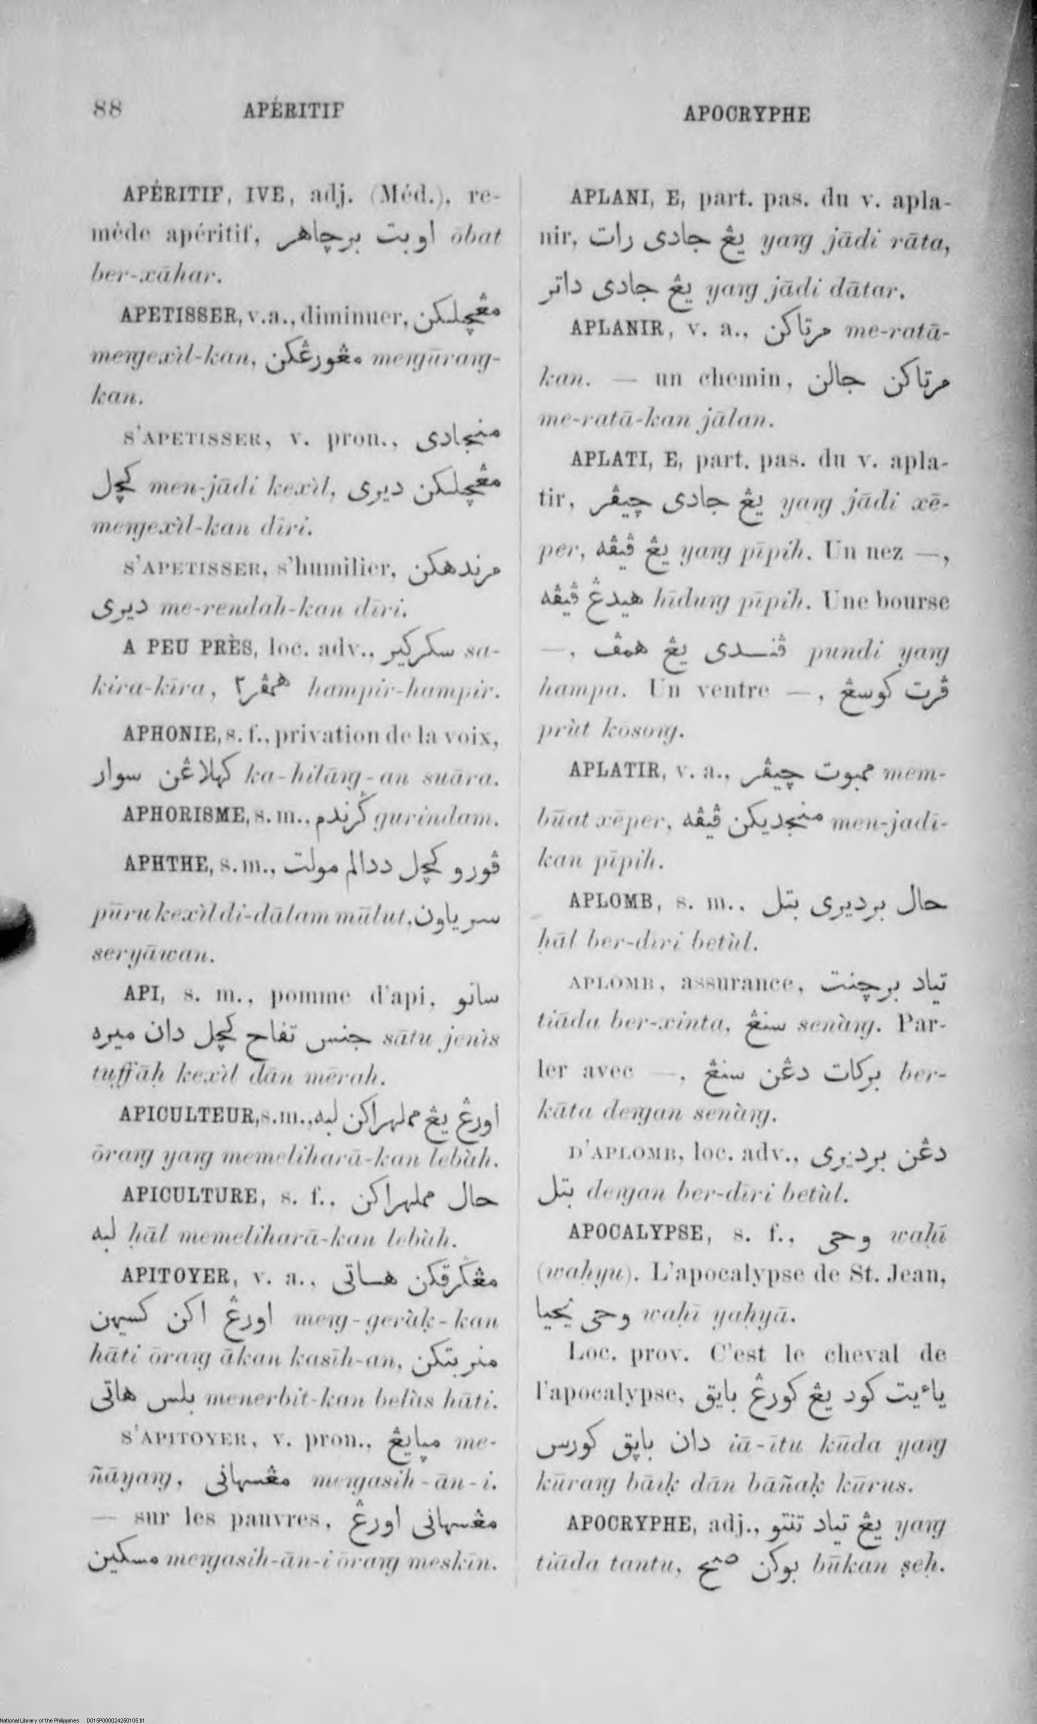 88 APÉRITIF
APÉRITIF, IVE, adj. (Méd.), re-
mède apéritif, اوبت برچاهر ōbat
ber-xāhar.
APETISSER, v.a., diminuer, مڠچلكن
meŋgexìl-kan, مڠورڠكن meŋgūraŋg-
kan.
S'APETISSER, v. pron., منجادى
كچل men-jādi kexìl, مڠچلكن ديرى
meŋgexìl-kan dīri.
S'APETISSER, s'humilier, مرندهكن
ديرى me-rendah-kan dīri.
A PEU PRÈS, loc. adv., سكركير sa-
kira-kīra, همڤر٢ hampir-hampir.
APHONIE, s. f., privation de la voix,
كهلاڠن سوار ka-hilāŋg-an suāra.
APHORISME, s. m., ݢرندم gurindam.
APHTHE, s. m., ڤورو كچل ددالم مولت
pūru kexìl di-dālam mūlut, سرياون
seryāwan.
API, s. m., pomme d'api, ساتو
جنس تفاح كچل دان ميره sātu jenìs
tuffāḥ kexìl dān mērah.
APICULTEUR, s. m., اورڠ يڠ مملهراكن لبه
ōraŋg yaŋg memeliharā-kan lebùh.
APICULTURE, s. f., حال مملهراكن
لبه ḥāl memeliharā-kan lebùh.
APITOYER, v. a., مڠݢرقكن هاتى
اورڠ اكن كسيهن meŋg-gerùḳ-kan
hāti ōraŋg ākan kasīh-an, منربتكن
بلس هاتى menerbit-kan belùs hāti.
S'APITOYER, v. pron., مپايڠ me-
ñāyaŋg, مڠسهانى meŋgasih-ān-i.
— sur les pauvres, مڠسهانى اورڠ
مسكين meŋgasih-ān-i ōraŋg meskīn.
APOCRYPHE
APLANI, E, part. pas. du v. apla-
nir, يڠ جادى رات yaŋg jādi rāta,
يڠ جادى داتر yaŋg jādi dātar.
APLANIR, v. a., مرتاكن me-ratā-
kan. — un chemin, مرتاكن جالن
me-ratā-kan jālan.
APLATI, E, part. pas. du v. apla-
tir, يڠ جادى چيڤر yaŋg jādi xē-
per, يڠ ڤيڤه yaŋg pīpih. Un nez —,
هيدڠ ڤيڤه hīduŋg pīpih. Une bourse
—, ڤندى يڠ همڤ pundi yaŋg
hampa. Un ventre —, ڤرت كوسڠ
prùt kōsoŋg.
APLATIR, v. a., ممبوت چيڤر mem-
būat xēper, منجديكن ڤيڤه men-jadī-
kan pīpih.
APLOMB, s. m., حال برديرى بتل
ḥāl ber-dīri betùl.
APLOMB, assurance, تياد برچنت
tiāda ber-xinta, سنڠ senàŋg. Par-
ler avec —, بركات دڠن سنڠ ber-
kāta deŋgan senàŋg.
D'APLOMB, loc. adv., دڠن برديرى
بتل deŋgan ber-dīri betùl.
APOCALYPSE, s. f., وحى waḥī
(waḥyu). L'apocalypse de St. Jean,
وحى يحيا waḥī yaḥyā.
Loc. prov. C'est le cheval de
l'apocalypse, ياءيت كود يڠ كورڠ بايق
دان باپق كورس iā-ītu kūda yaŋg
kūraŋg bāiḳ dān bāñaḳ kūrus.
APOCRYPHE, adj., يڠ تياد تنتو yaŋg
tiāda tantu, بوكن صح būkan ṣeḥ.
National Library of the Philippines